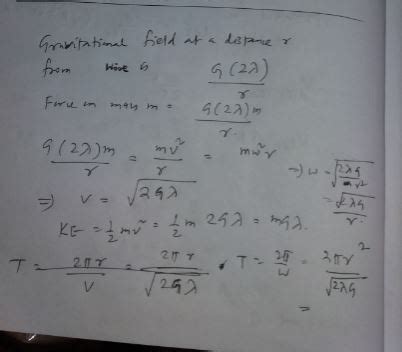 Gravitational field at a distance r
from wire is G(2λ)/r
Force on mass m = G(2λ)m/r.
G(2λ)m/r = mv²/r = mω²r
⇒ ω = √(2λG/r²)
⇒ v = √2Gλ = √2λG/r.
KE = ½mv² = ½m 2Gλ = mGλ.
T = 2πr/v = 2πr/√2Gλ . T = 2π/ω = 2πr²/√2λG
=